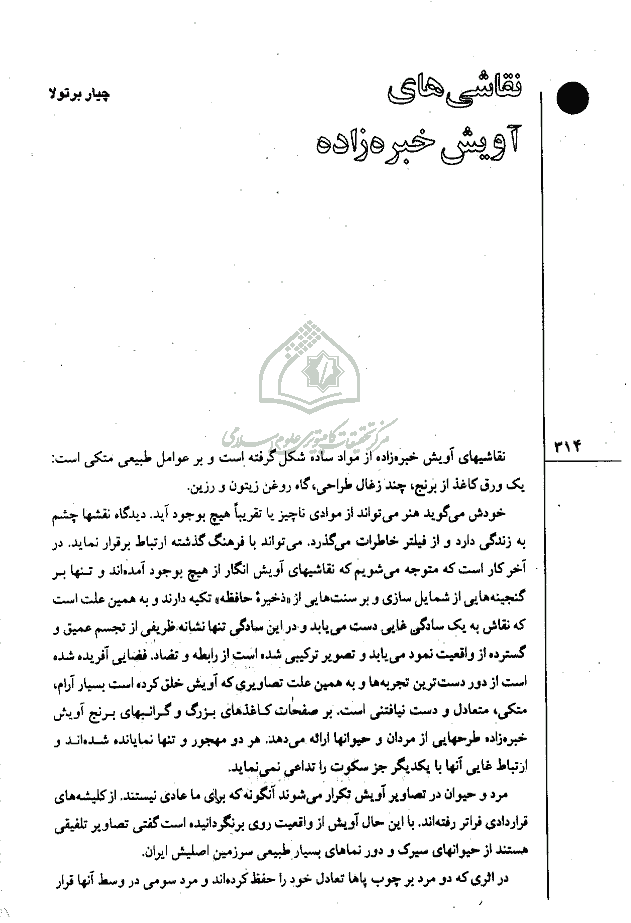 نقاشی‌های
آویش خبره‌زاده
چیار برتولا
مرکز تحقیقات کامپیوتری علوم اسلامی
۳۱۴
نقاشیهای آویش خبره‌زاده از مواد ساده شکل گرفته است و بر عوامل طبیعی متکی است:
یک ورق کاغذ از برنج، چند زغال طراحی، گاه روغن زیتون و رزین.
خودش می‌گوید هنر می‌تواند از موادی ناچیز یا تقریباً هیچ بوجود آید. دیدگاه نقشها چشم
به زندگی دارد و از فیلتر خاطرات می‌گذرد. می‌تواند با فرهنگ گذشته ارتباط برقرار نماید. در
آخر کار است که متوجه می‌شویم که نقاشیهای آویش انگار از هیچ بوجود آمده‌اند و تنها بر
گنجینه‌هایی از شمایل سازی و بر سنت‌هایی از «ذخیرهٔ حافظه» تکیه دارند و به همین علت است
که نقاش به یک سادگی غایی دست می‌یابد و در این سادگی تنها نشانه ظریفی از تجسم عمیق و
گسترده از واقعیت نمود می‌یابد و تصویر ترکیبی شده است از رابطه و تضاد. فضایی آفریده شده
است از دور دست‌ترین تجربه‌ها و به همین علت تصاویری که آویش خلق کرده است بسیار آرام،
متکی، متعادل و دست نیافتنی است. بر صفحات کاغذهای بزرگ و گرانبهای برنج آویش
خبره‌زاده طرحهایی از مردان و حیوانها ارائه می‌دهد. هر دو مهجور و تنها نمایانده شده‌اند و
ارتباط غایی آنها با یکدیگر جز سکوت را تداعی نمی‌نماید.
مرد و حیوان در تصاویر آویش تکرار می‌شوند آنگونه که برای ما عادی نیستند. از کلیشه‌های
قراردادی فراتر رفته‌اند. با این حال آویش از واقعیت روی برنگردانیده است گفتی تصاویر تلفیقی
هستند از حیوانهای سیرک و دور نماهای بسیار طبیعی سرزمین اصلیش ایران.
در اثری که دو مرد بر چوب پاها تعادل خود را حفظ کرده‌اند و مرد سومی در وسط آنها قرار